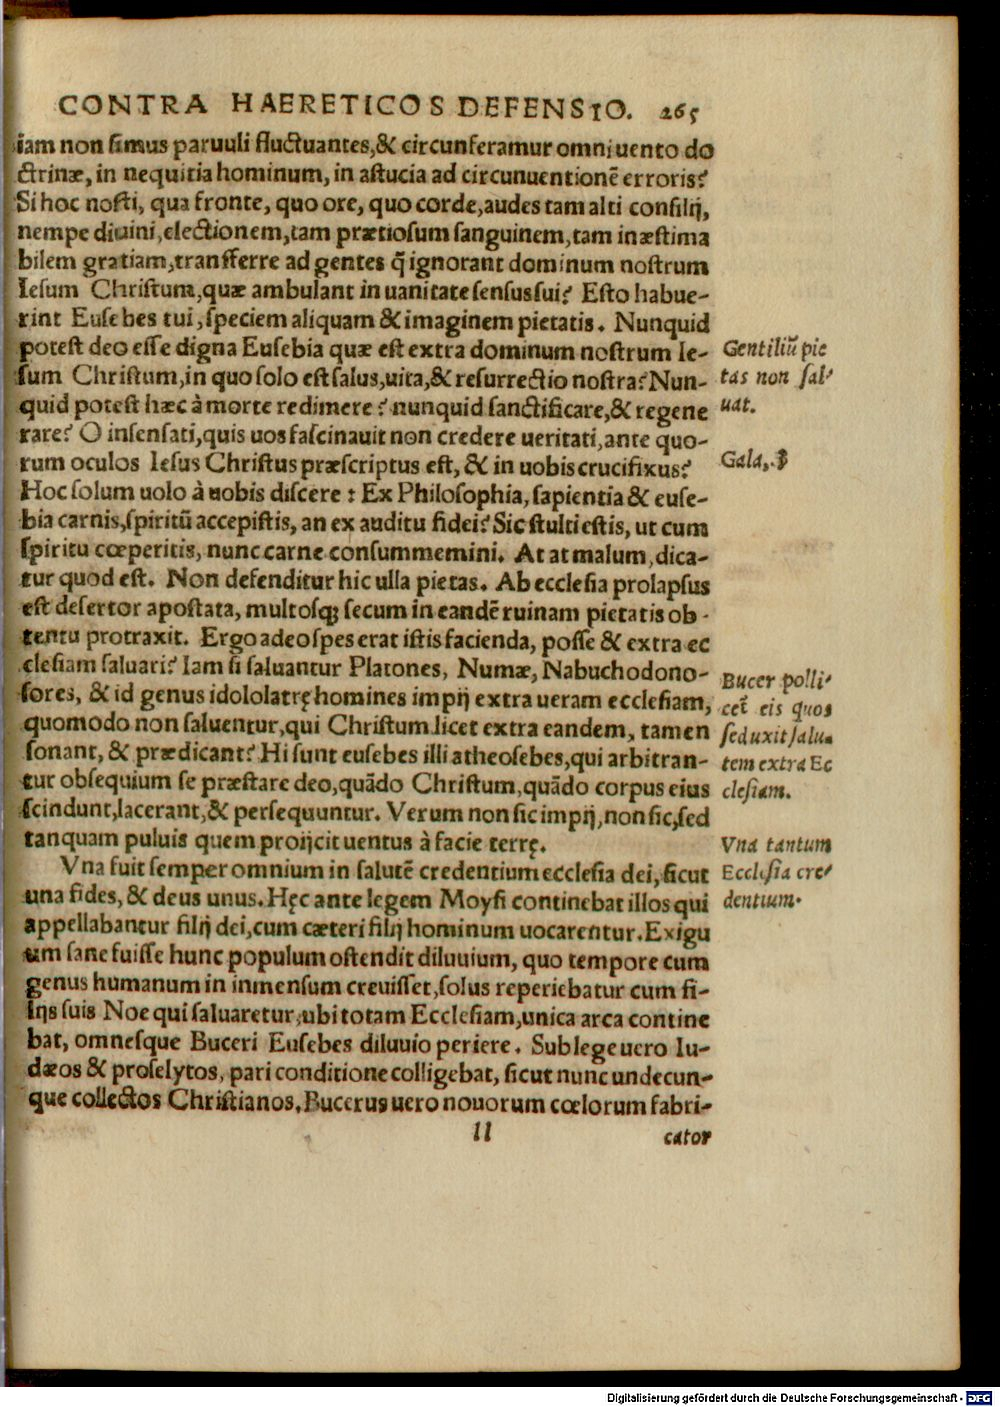 CONTRA HAERETICOS DEFENSIO. 265
iam non simus paruuli fluctuantes,& circunferamur omni uento do
ctrinæ, in nequitia hominum, in astucia ad circunuentionē erroris?
Si hoc nosti, qua fronte, quo ore, quo corde,audes tam alti consilij,
nempe diuini,electionem,tam prætiosum sanguinem,tam inæstima
bilem gratiam,transferre ad gentes q̃ ignorant dominum nostrum
Iesum Christum,quæ ambulant in uanitate sensus sui? Esto habue-
rint Eusebes tui,speciem aliquam & imaginem pietatis. Nunquid
potest deo esse digna Eusebia quæ est extra dominum nostrum Ie-
sum Christum,in quo solo est salus,uita,& resurrectio nostra? Nun-
quid potest hæc à morte redimere? nunquid sanctificare,& regene
rare? O insensati,quis uos fascinauit non credere ueritati,ante quo-
rum oculos Iesus Christus præscriptus est, & in uobis crucifixus?
Hoc solum uolo à uobis discere: Ex Philosophia, sapientia & euse-
bia carnis,spiritū accepistis, an ex auditu fidei? Sic stulti estis, ut cum
spiritu cœperitis, nunc carne consummemini. At at malum, dica-
tur quod est. Non defenditur hic ulla pietas. Ab ecclesia prolapsus
est desertor apostata, multosq; secum in eandē ruinam pietatis ob-
tentu protraxit. Ergo adeo spes erat istis facienda, posse & extra ec
clesiam saluari? Iam si saluantur Platones, Numæ, Nabuchodono-
sores, & id genus idololatrę homines impij extra ueram ecclesiam,
quomodo non saluentur,qui Christum licet extra eandem, tamen
sonant, & prædicant? Hi sunt eusebes illi atheosebes,qui arbitran-
tur obsequium se præstare deo,quādo Christum,quādo corpus eius
scindunt,lacerant,& persequuntur. Verum non sic impij,non sic,sed
tanquam puluis quem proijcit uentus à facie terrę.
Vna fuit semper omnium in salutē credentium ecclesia dei,sicut
una fides, & deus unus. Hęc ante legem Moysi continebat illos qui
appellabantur filij dei,cum cæteri filij hominum uocarentur. Exigu
um sane fuisse hunc populum ostendit diluuium, quo tempore cum
genus humanum in inmensum creuisset,solus reperiebatur cum fi-
lijs suis Noe qui saluaretur,ubi totam Ecclesiam,unica arca contine
bat, omnesque Buceri Eusebes diluuio periere. Sub lege uero Iu-
dæos & proselytos, pari conditione colligebat, sicut nunc undecun-
que collectos Christianos. Bucerus uero nouorum cœlorum fabri-
ll cator
Gentiliū pie
tas non sal-
uat.
Gala, 3
Bucer polli-
cet̄ eis quos
seduxit salu-
tem extra Ec
clesiam.
Vna tantum
Ecclesia cre-
dentium.
Digitalisierung gefördert durch die Deutsche Forschungsgemeinschaft - DFG